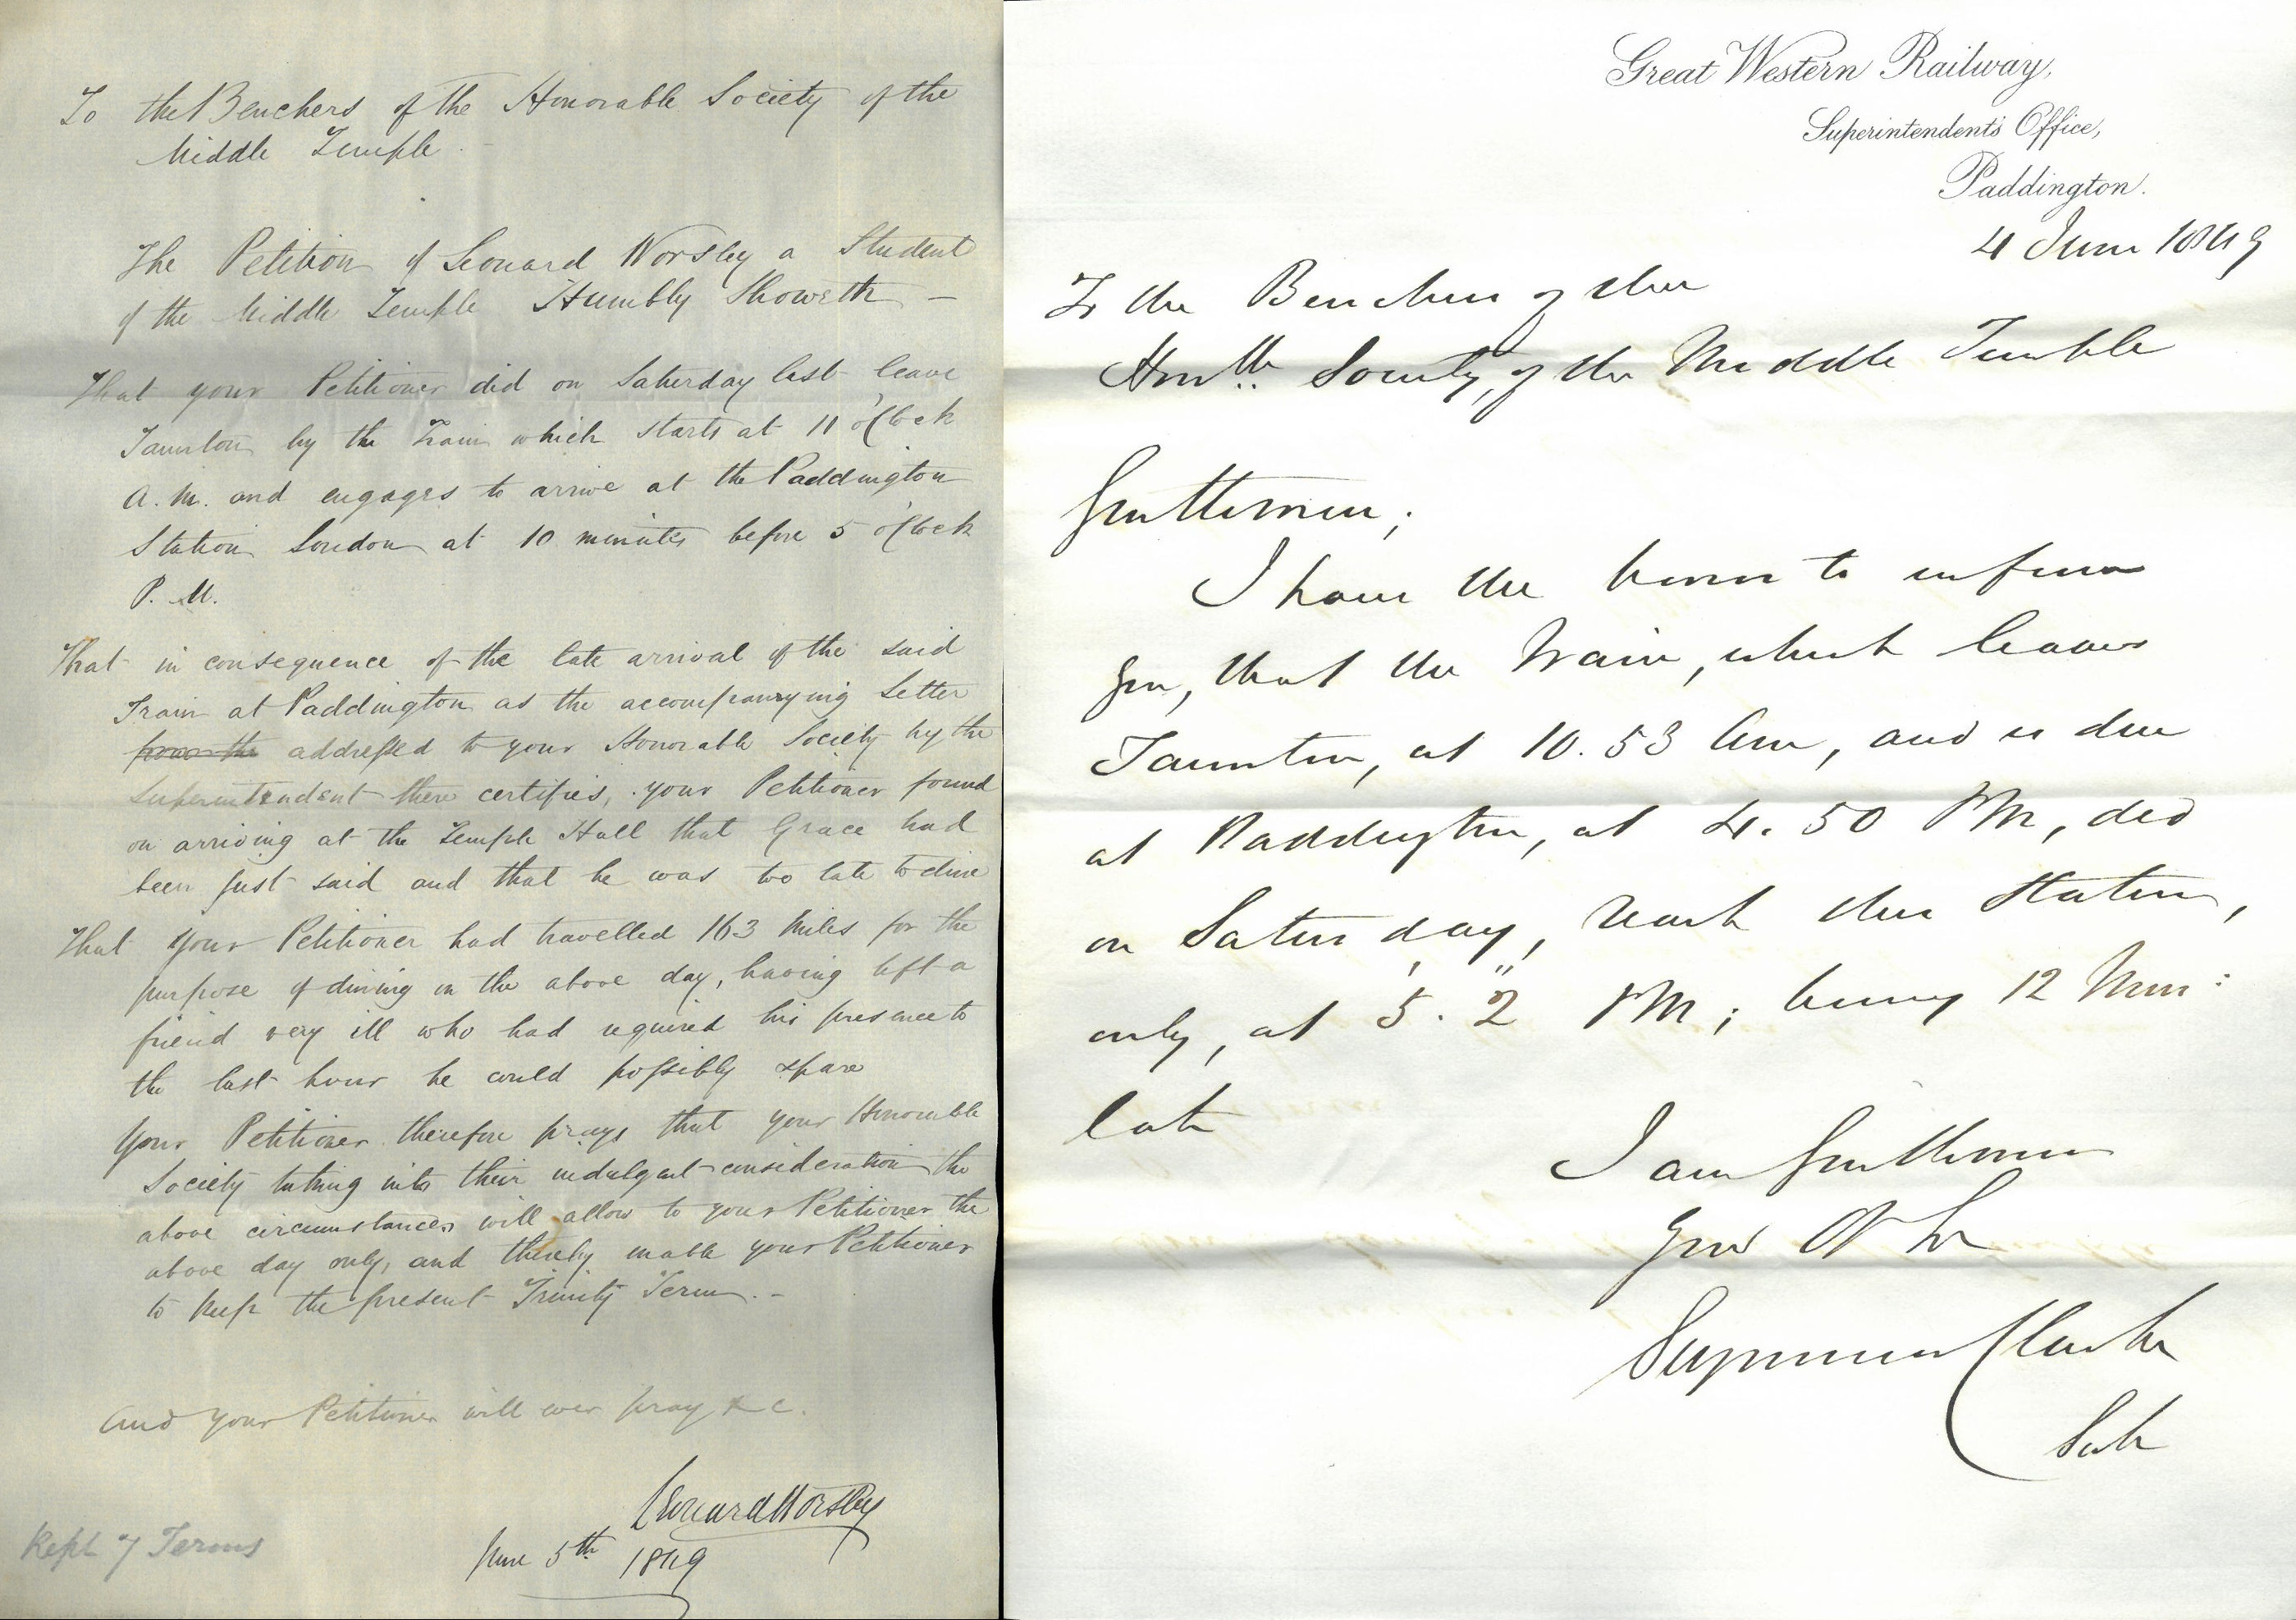 To the Benchers of the Honorable Society of the
Middle Temple.
The Petition of Leonard Worsley a Student
of the Middle Temple Humbly Showeth —
That your Petitioner did on Saturday last leave
Taunton by the Train which starts at 11 o'Clock
A.M. and engages to arrive at the Paddington
Station London at 10 minutes before 5 o'Clock
P.M.
That in consequence of the late arrival of the said
Train at Paddington as the accompanying Letter
from the addressed to your Honorable Society by the
Superintendent there certifies, your Petitioner found
on arriving at the Temple Hall that Grace had
been just said and that he was too late to dine
That your Petitioner had travelled 163 Miles for the
purpose of dining on the above day, having left a
friend very ill who had required his presence to
the last hour he could possibly spare
Your Petitioner therefore prays that your Honorable
Society taking into their indulgent consideration the
above circumstances will allow to your Petitioner the
above day only, and thereby enable your Petitioner
to keep the present Trinity Term. -
And your Petitioner will ever pray &c.
Leonard Worsley
June 5th 1849
Kept 7 Terms
Great Western Railway,
Superintendent's Office,
Paddington.
4 June 1849
To the Benchers of the
Honble. Society, of the Middle Temple
Gentlemen;
I have the honor to inform
you, that the Train, which leaves
Taunton, at 10.53 Am, and is due
at Paddington, at 4.50 PM, did
on Saturday, reach this Station,
only, at 5.2 PM; being 12 Min:
late
I am Gentlemen
Your Ob Sr
Seymour Clarke
Supt